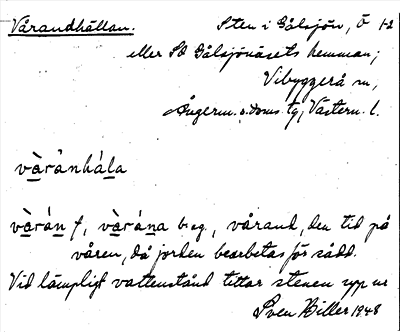 Vårandhällan. Sten i Gålsjön, Ö 1-2
eller SO Gålsjönäsets hemman;
Vibyggerå sn,
Ångerm. s. doms. tg, Västern. l.
vàrånhála
vàrán f, vàrána b. sg., vårand, den tid på
våren, då jorden bearbetas för sådd.
Vid lämpligt vattenstånd tittar stenen upp ur
Sven Biller 1948